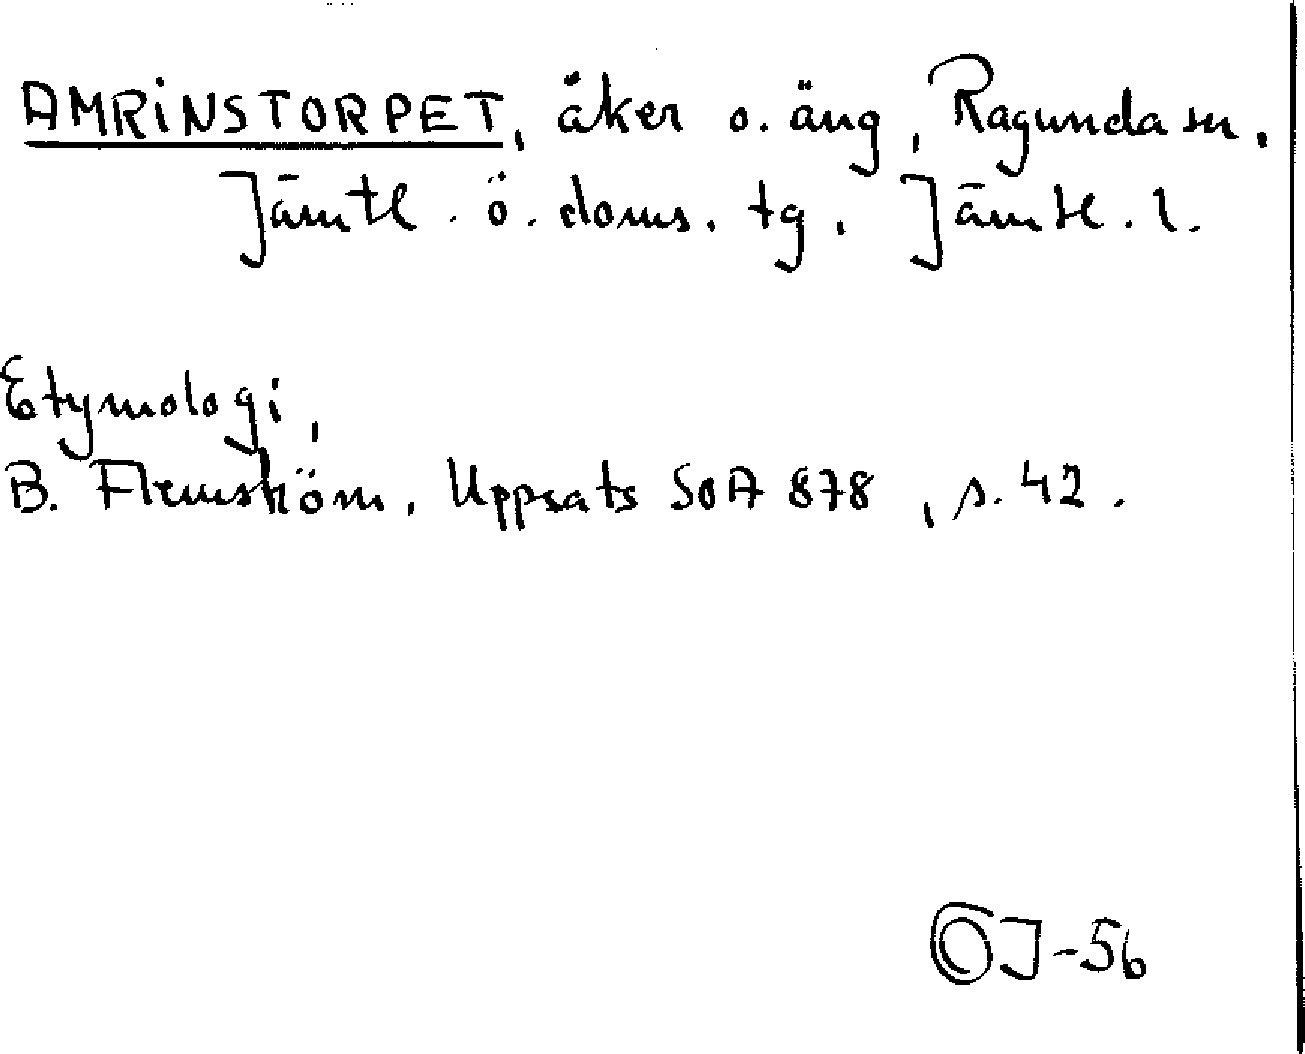 AMRINSTORPET, åker o. äng, Ragunda sn,
Jämtl. ö. doms. tg, Jämtl. l.
Etymologi,
B. Flemström, Uppsats SOA 878, s. 42.
OJ-56